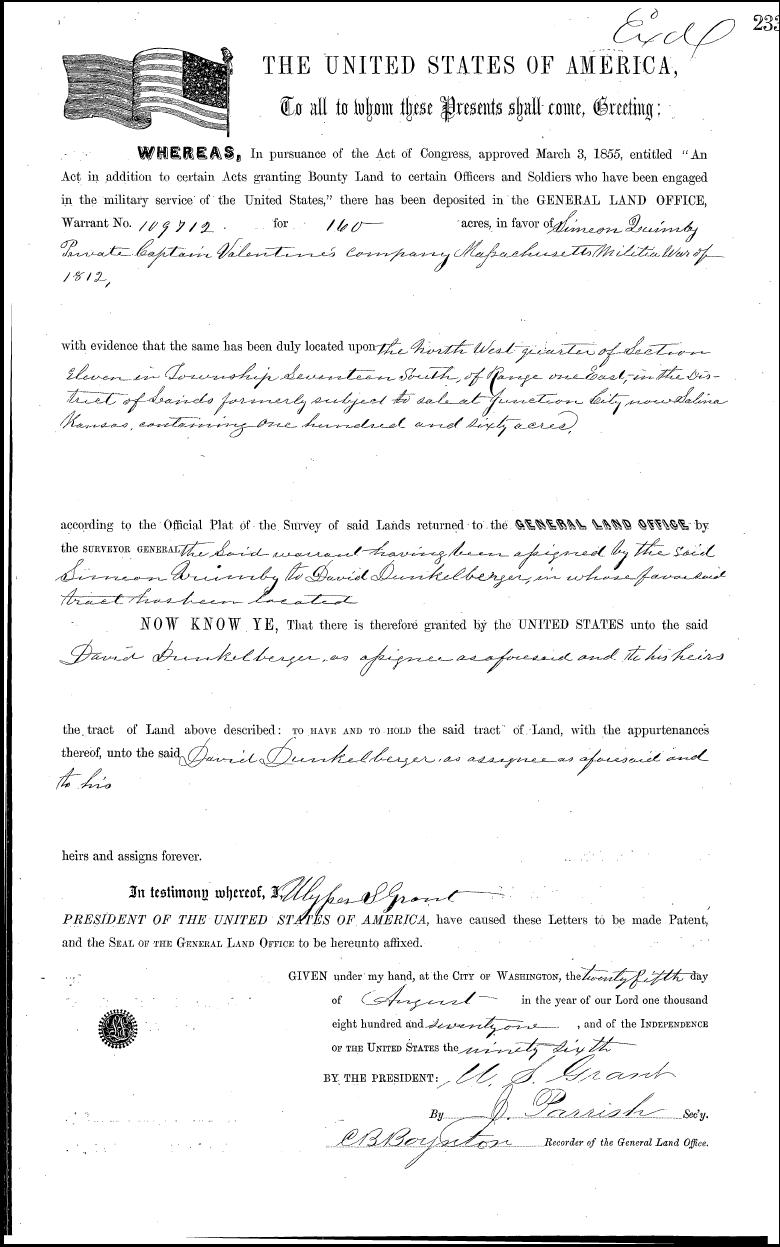 Exd
233
THE UNITED STATES OF AMERICA,
To all to whom these Presents shall come, Greeting:
WHEREAS, In pursuance of the Act of Congress, approved March 3, 1855, entitled "An
Act in addition to certain Acts granting Bounty Land to certain Officers and Soldiers who have been engaged
in the military service of the United States," there has been deposited in the GENERAL LAND OFFICE,
Warrant No. 109712. for 160 acres, in favor of Simeon Quimby
Private Captain Valentine's company Massachusetts Militia War of
1812,
with evidence that the same has been duly located upon the North West quarter of Section
Eleven in Township Seventeen South, of Range one East, in the Dis-
trict of Lands formerly subject to sale at Junction City now Salina
Kansas, containing one hundred and sixty acres,
according to the Official Plat of the Survey of said Lands returned to the GENERAL LAND OFFICE by
the SURVEYOR GENERAL the said warrant having been assigned by the said
Simeon Quimby to David Dunkelberger, in whose favor said
tract has been located
NOW KNOW YE, That there is therefore granted by the UNITED STATES unto the said
David Dunkelberger, as assignee as aforesaid and to his heirs
the tract of Land above described: TO HAVE AND TO HOLD the said tract of Land, with the appurtenances
thereof, unto the said David Dunkelberger, as assignee as aforesaid and
to his
heirs and assigns forever.
In testimony whereof, I, Ulysses S Grant
PRESIDENT OF THE UNITED STATES OF AMERICA, have caused these Letters to be made Patent,
and the SEAL OF THE GENERAL LAND OFFICE to be hereunto affixed.
GIVEN under my hand, at the CITY OF WASHINGTON, the twenty fifth day
of August in the year of our Lord one thousand
eight hundred and seventy one, and of the INDEPENDENCE
OF THE UNITED STATES the ninety sixth
BY THE PRESIDENT: U. S. Grant
By J. Parrish Sec'y.
C B Boynton Recorder of the General Land Office.